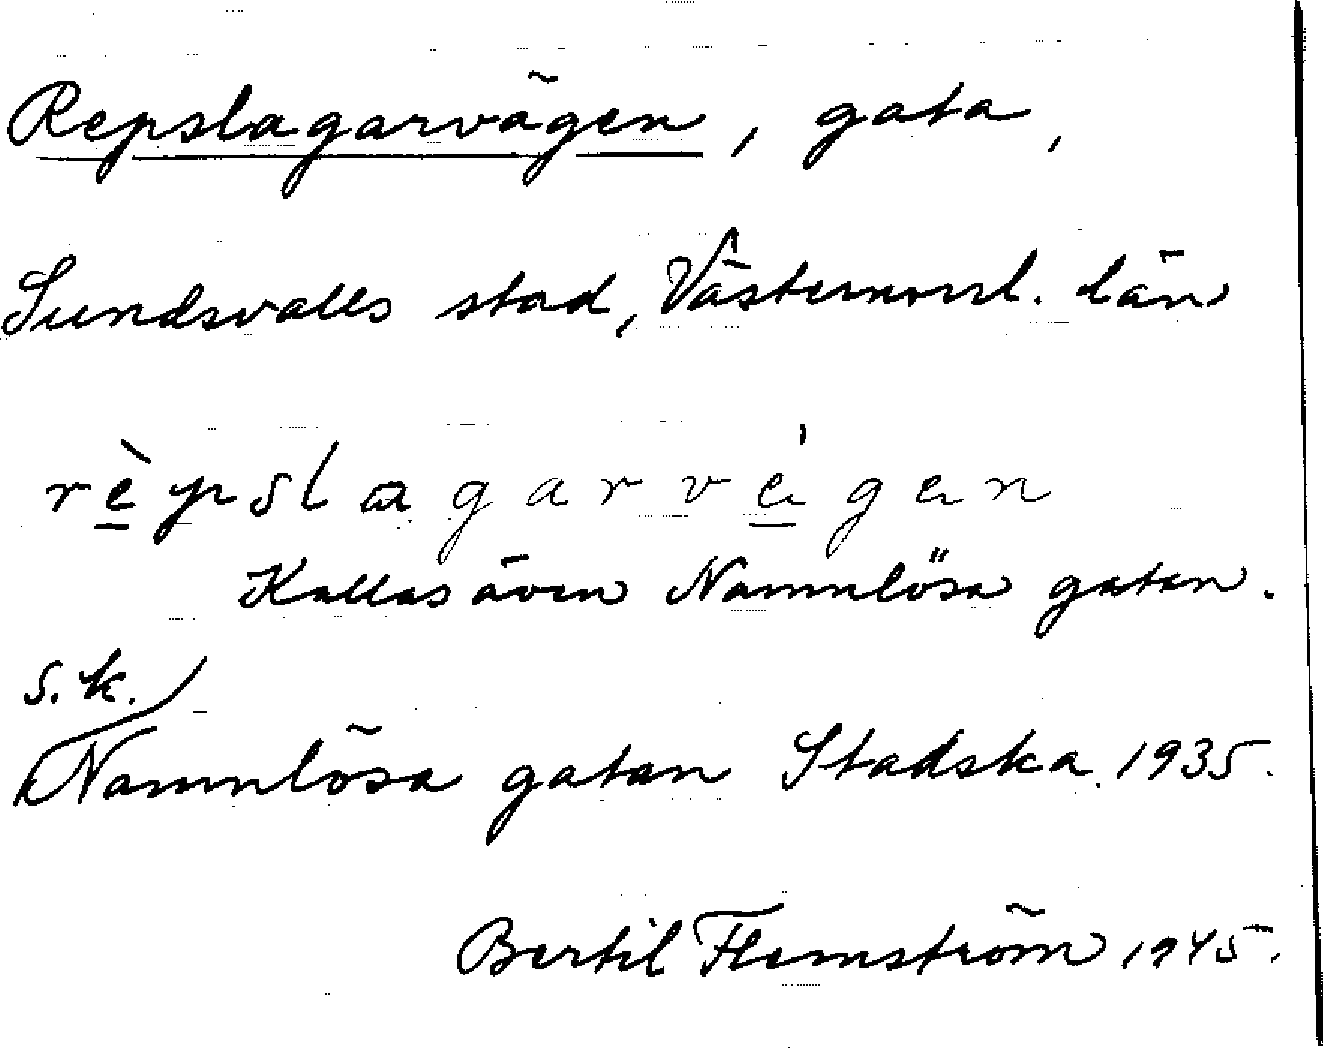 Repslagarvägen, gata,
Sundsvalls stad, Västernorrl. län
rèpslagarvégen
Kallas även Namnlösa gatan.
s.k.
Namnlösa gatan Stadska. 1935.
Bertil Flemström 1945.